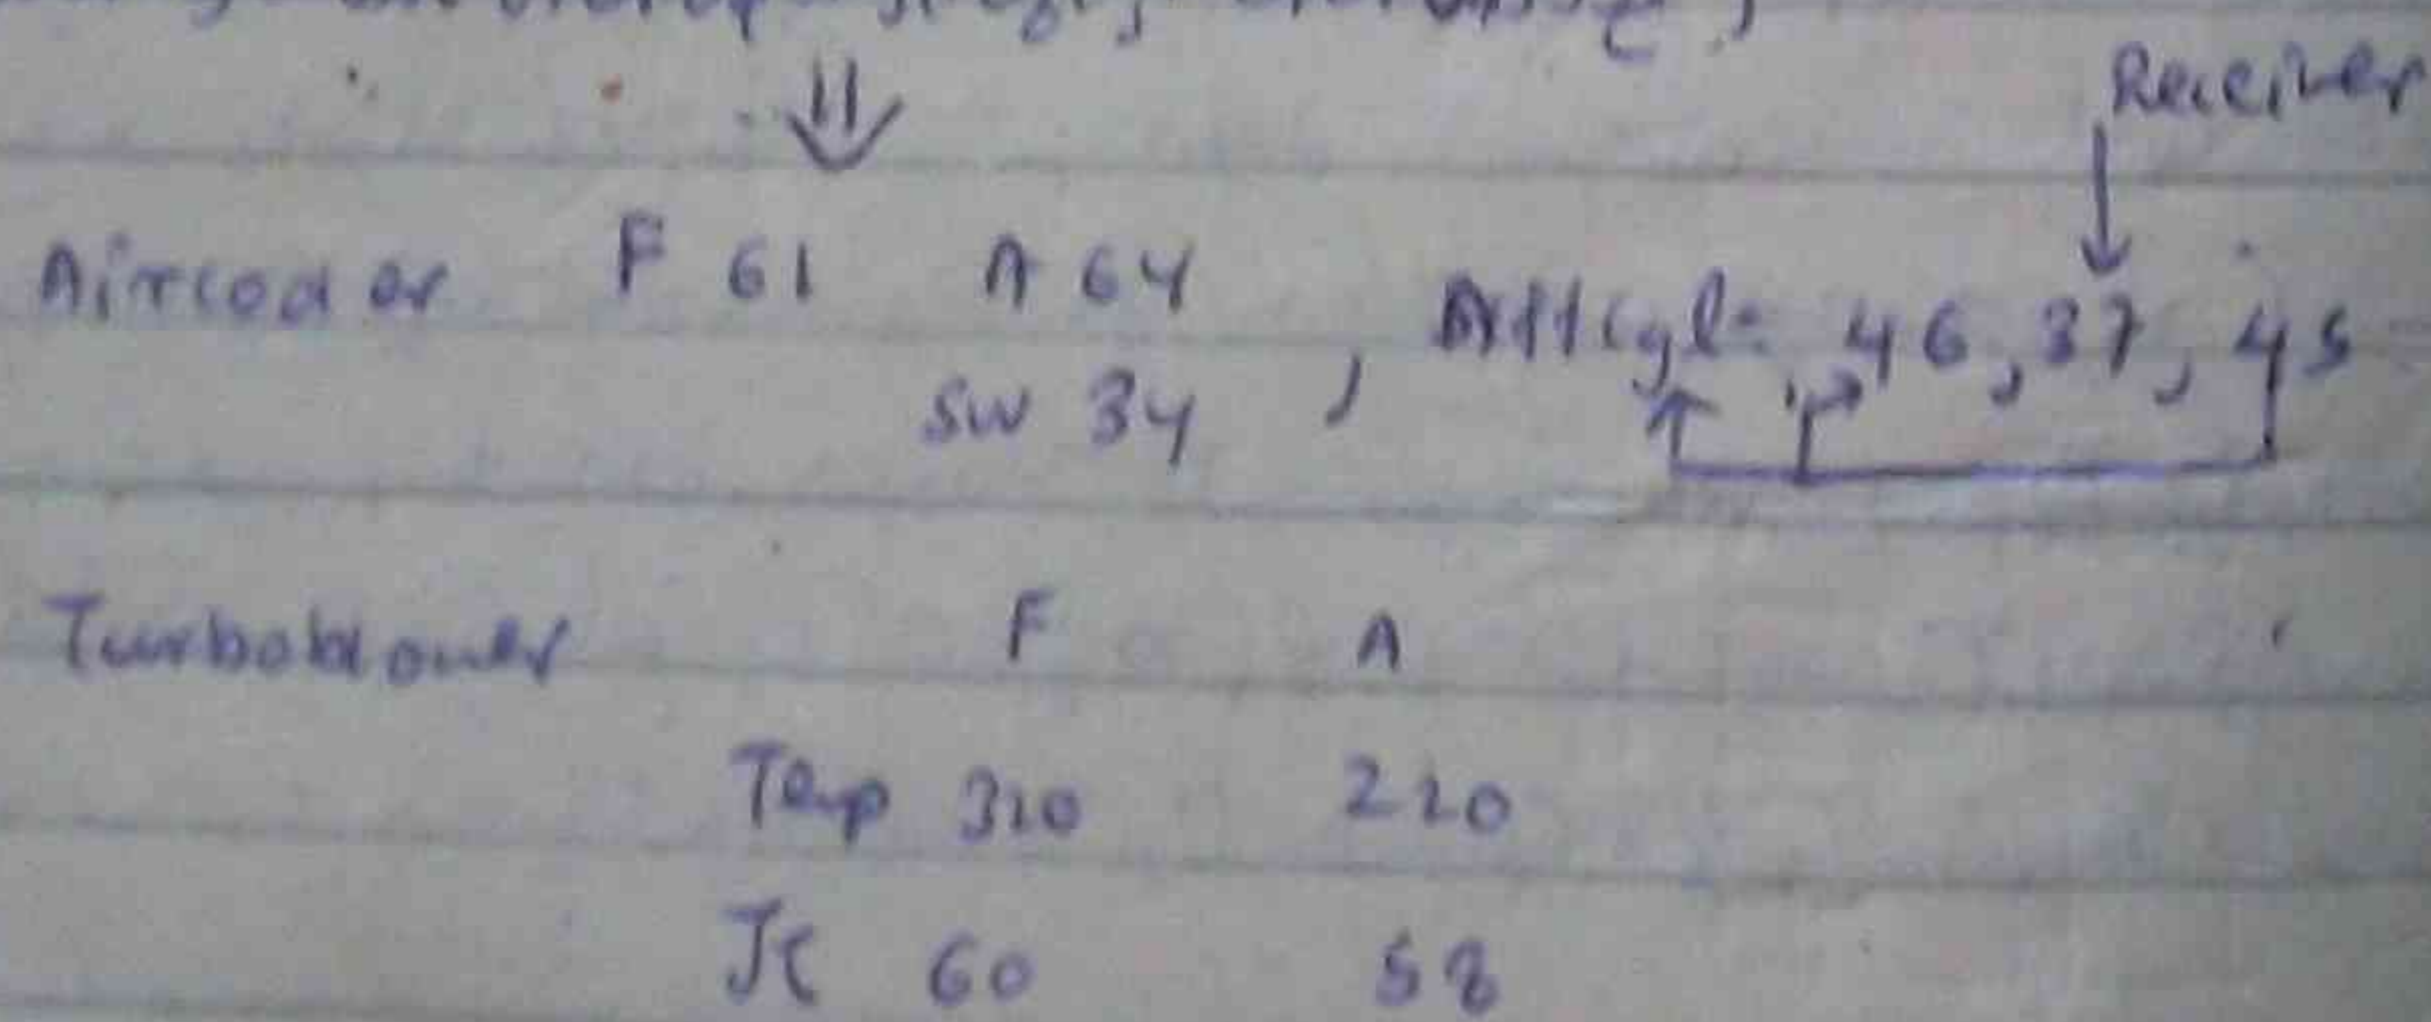 Receiver
Aircooler F 61 A 64 , Aft Cyl: 46, 37, 45
SW 34
Turboblower F A
Temp 310 220
JC 60 58